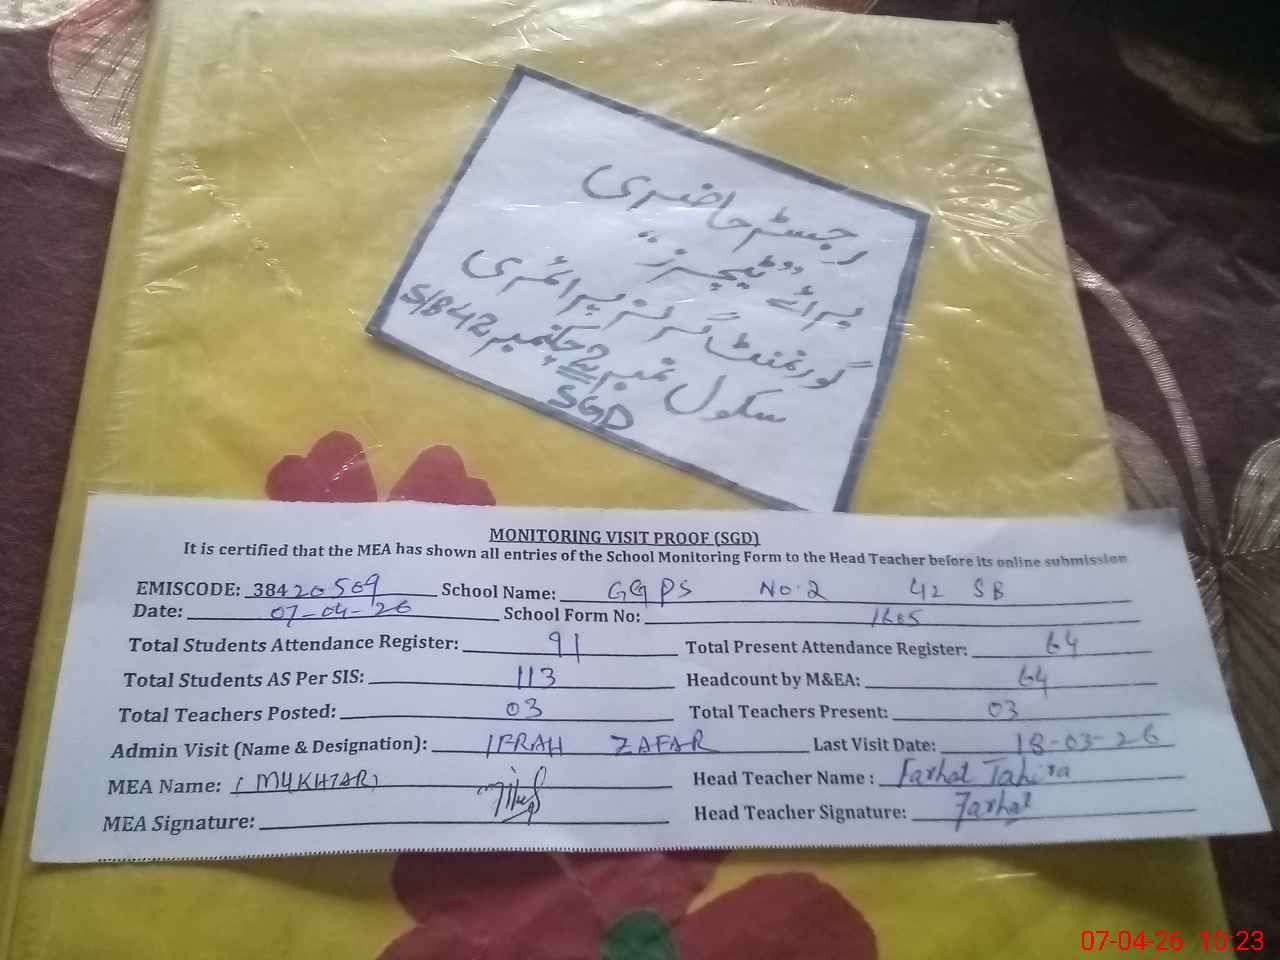 رجسٹر حاضری
برائے "ٹیچرز"
گورنمنٹ گرلز پرائمری
سکول نمبر 2 چک نمبر 42 S/B
SGD
MONITORING VISIT PROOF (SGD)
It is certified that the MEA has shown all entries of the School Monitoring Form to the Head Teacher before its online submission
EMISCODE: 38420509 School Name: GGPS No.2 42 SB
Date: 07-04-26 School Form No:
Total Students Attendance Register: 91 Total Present Attendance Register: 64
Total Students AS Per SIS: 113 Headcount by M&EA: 64
Total Teachers Posted: 03 Total Teachers Present: 03
Admin Visit (Name & Designation): IFRAH ZAFAR Last Visit Date: 18-03-26
MEA Name: (MUKHTAR) Head Teacher Name : Farhat Tahira
MEA Signature: Head Teacher Signature: Farhat
07-04-26 10:23